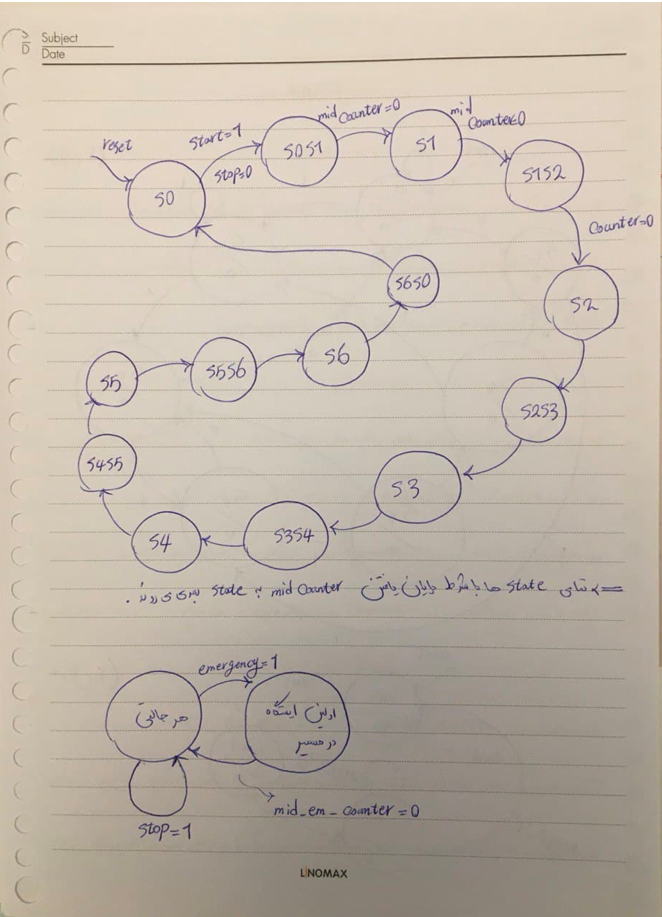 Subject
Date
reset
start=1
stop=0
mid counter=0
mid counter=0
counter=0
S0
S0S1
S1
S1S2
S2
S2S3
S3
S3S4
S4
S4S5
S5
S5S6
S6
S6S0
=> تمامی state ها با شرط پایان یافتن mid counter به state بعدی می روند.
emergency=1
هر حالتی
اولین ایستگاه
در مسیر
mid_em_counter=0
stop=1
LINOMAX